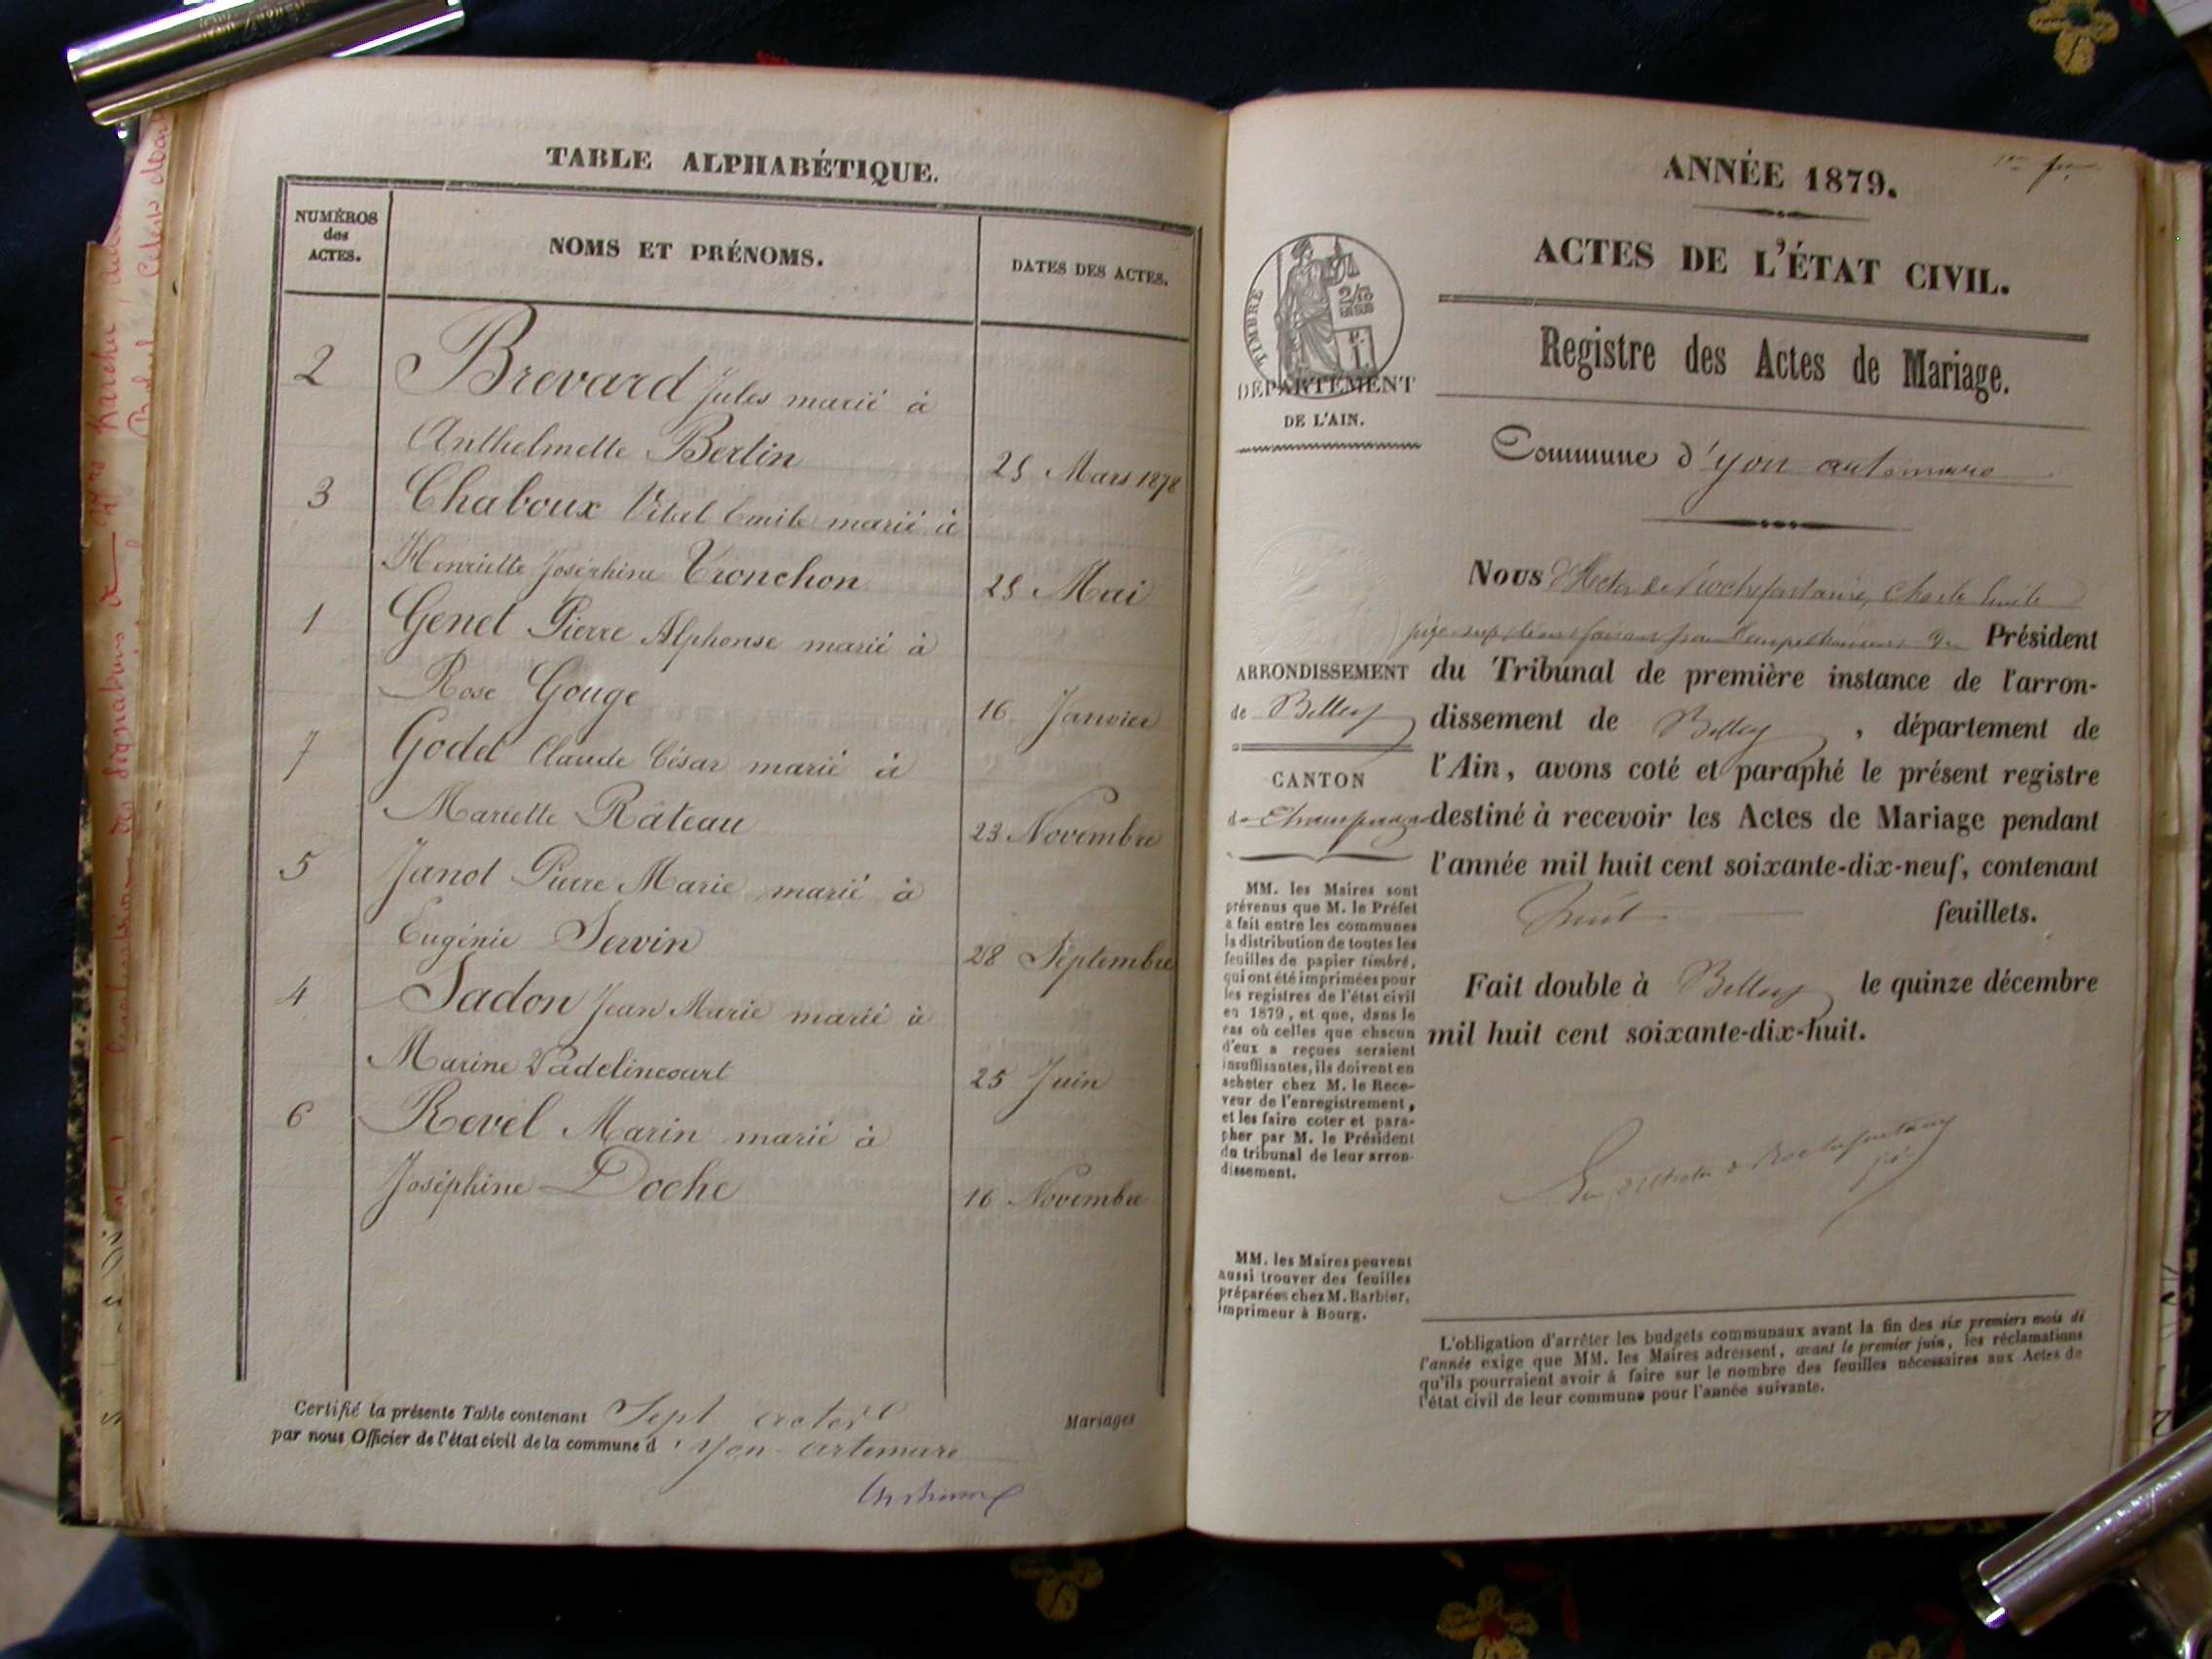 TABLE ALPHABÉTIQUE.
NUMÉROS
des
ACTES.
NOMS ET PRÉNOMS.
DATES DES ACTES.
2 Brevard Jules marié à
Anthelmette Bertin 25 Mars 1878
3 Chaboux Vital Emile marié à
Henriette Joséphine Tronchon 25 Mai
1 Genet Pierre Alphonse marié à
Rose Gouge 16 Janvier
7 Godet Claude César marié à
Mariette Râteau 23 Novembre
5 Janot Pierre Marie marié à
Eugénie Servin 28 Septembre
4 Sadon Jean Marie marié à
Marine Padelincourt 25 Juin
6 Revel Marin marié à
Joséphine Doche 16 Novembre
Certifié la présente Table contenant Sept Mariages
par nous Officier de l'état civil de la commune d'Yon-artemare
ANNÉE 1879.
ACTES DE L'ÉTAT CIVIL.
TIMBRE
2/10
EN SUS
DÉPARTEMENT
DE L'AIN.
Registre des Actes de Mariage.
Commune d'yon artemare
Nous
Président
ARRONDISSEMENT
de Belley
CANTON
de Champagne
du Tribunal de première instance de l'arron-
dissement de Belley, département de
l'Ain, avons coté et paraphé le présent registre
destiné à recevoir les Actes de Mariage pendant
l'année mil huit cent soixante-dix-neuf, contenant
huit feuillets.
Fait double à Belley le quinze décembre
mil huit cent soixante-dix-huit.
MM. les Maires sont
prévenus que M. le Préfet
a fait entre les communes
la distribution de toutes les
feuilles de papier timbré,
qui ont été imprimées pour
les registres de l'état civil
en 1879, et que, dans le
cas où celles que chacun
d'eux a reçues seraient
insuffisantes, ils doivent en
acheter chez M. le Rece-
veur de l'enregistrement,
et les faire coter et para-
pher par M. le Président
du tribunal de leur arron-
dissement.
MM. les Maires peuvent
aussi trouver des feuilles
préparées chez M. Barbier,
imprimeur à Bourg.
L'obligation d'arrêter les budgets communaux avant la fin des six premiers mois de
l'année exige que MM. les Maires adressent, avant le premier juin, les réclamations
qu'ils pourraient avoir à faire sur le nombre des feuilles nécessaires aux Actes de
l'état civil de leur commune pour l'année suivante.